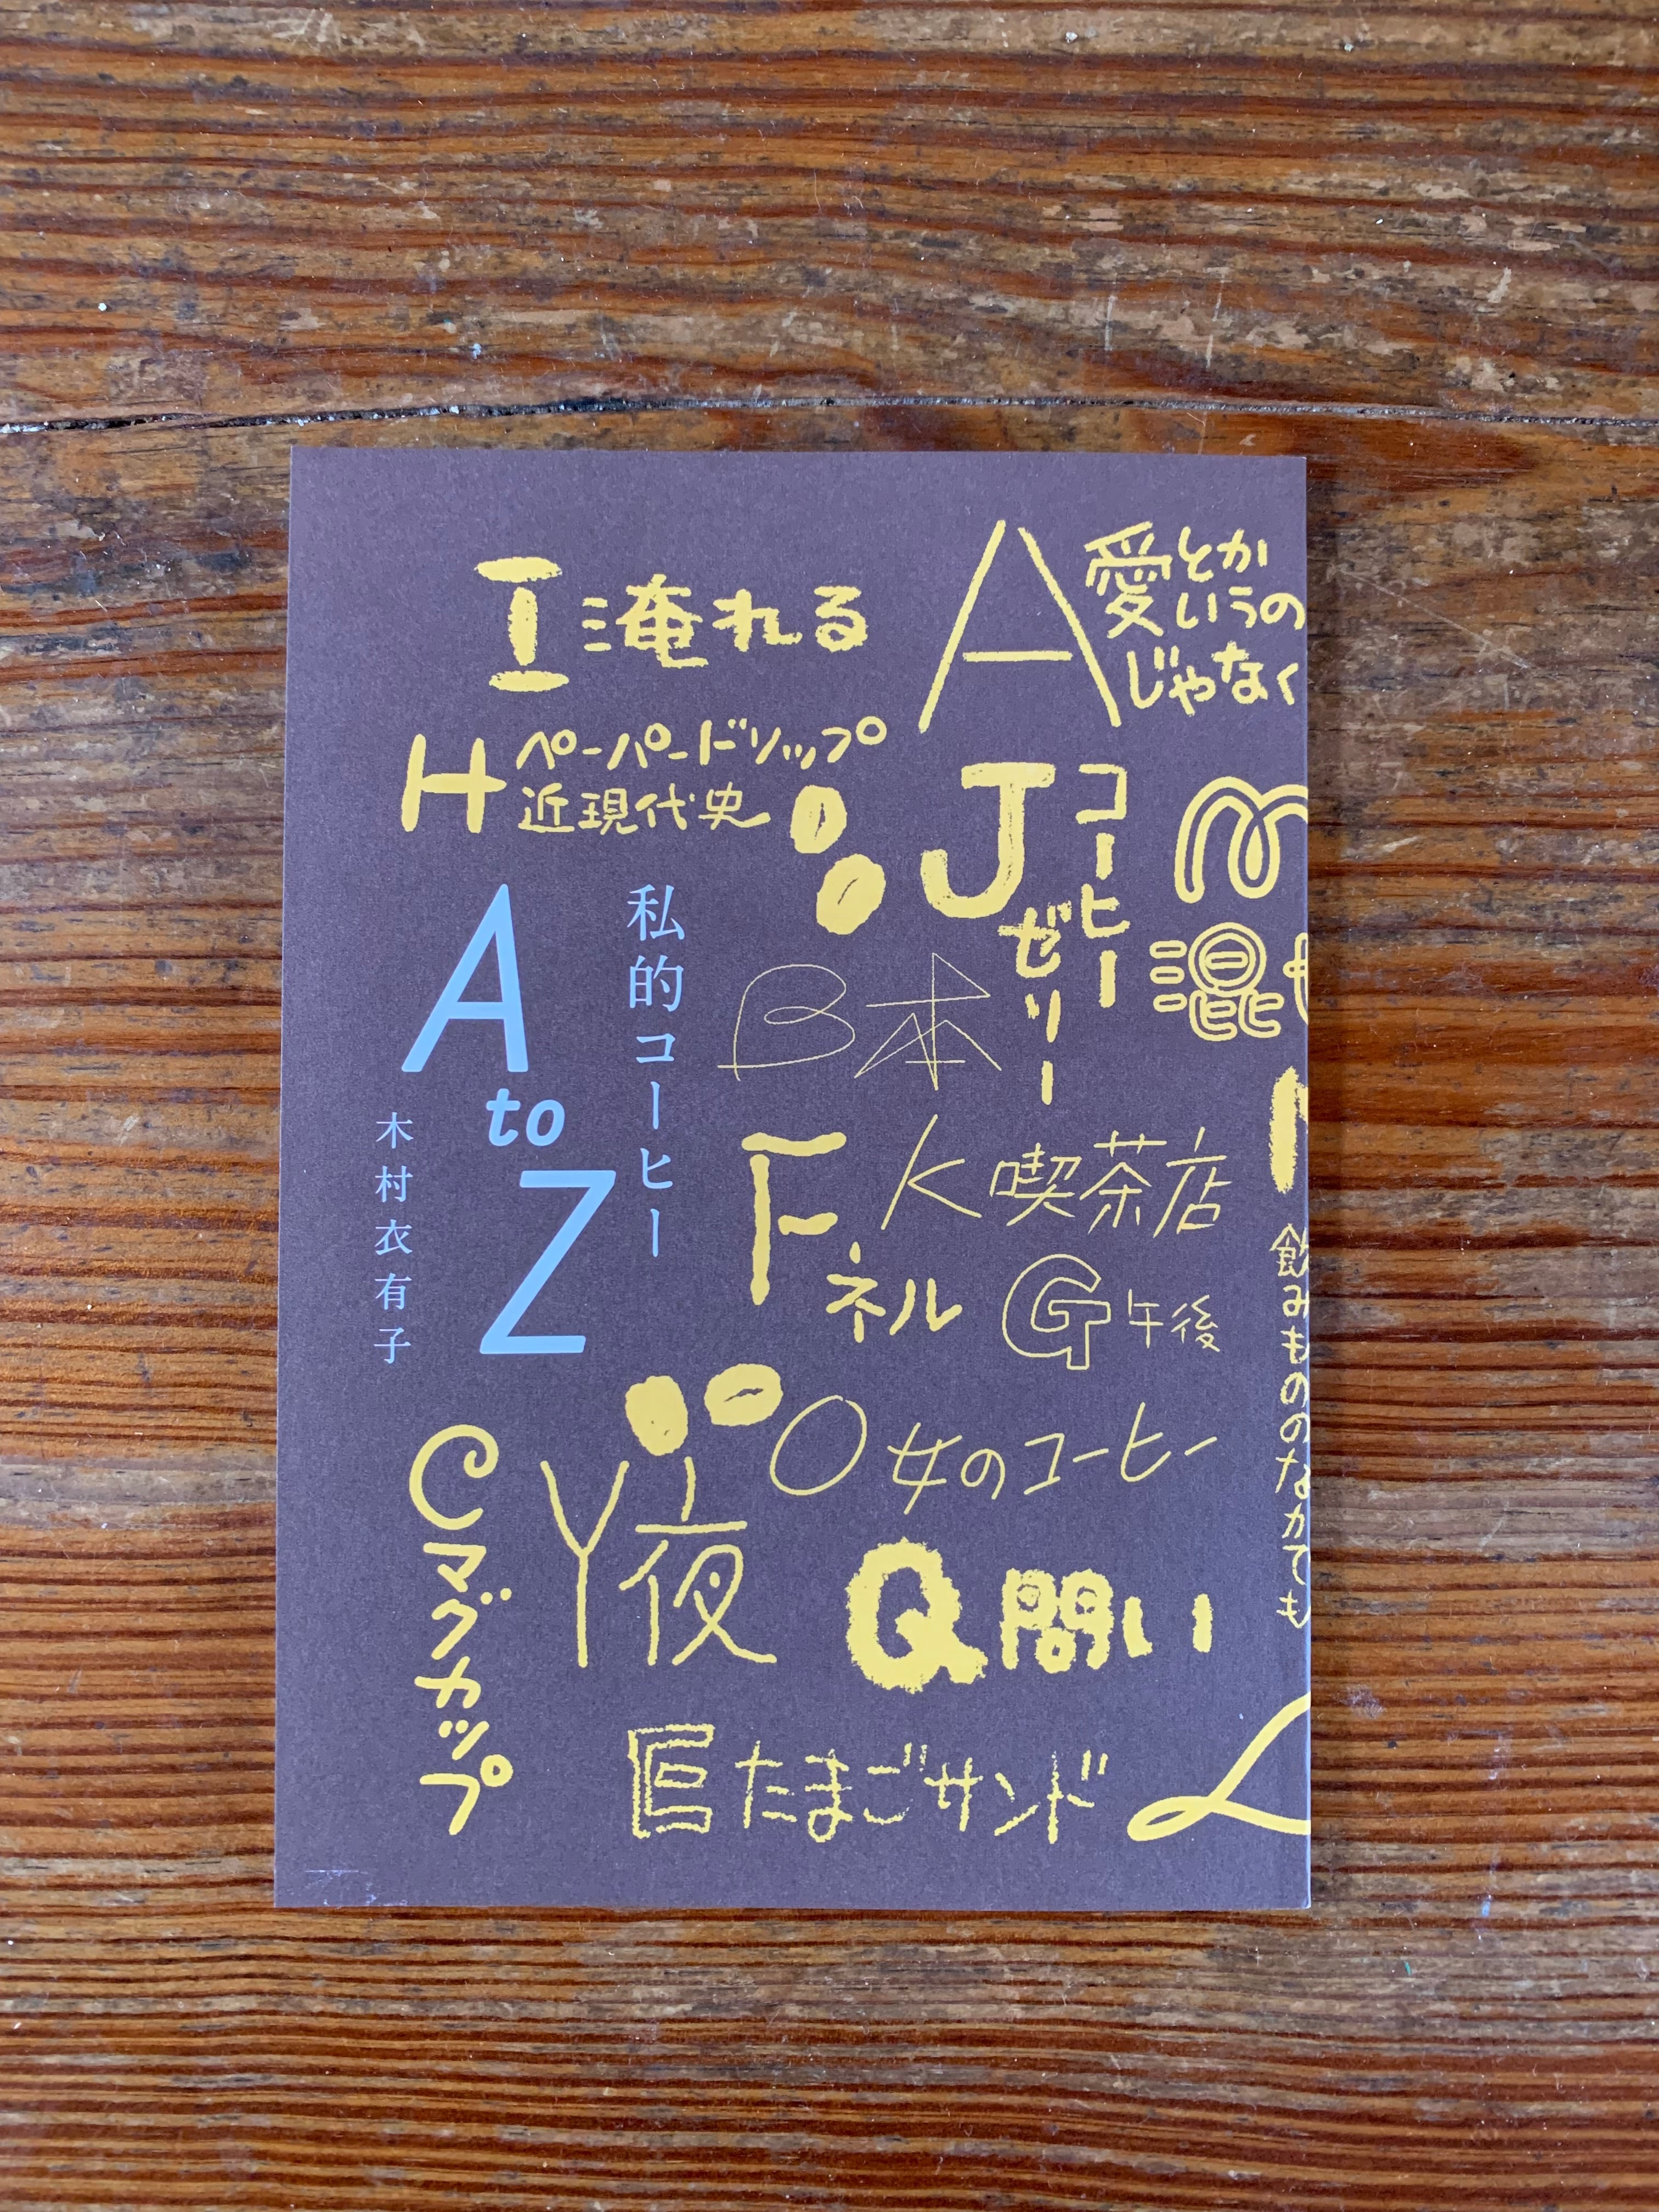 I 淹れる
A 愛とか
いうの
じゃなく
H ペーパードリップ
近現代史
J コーヒー
ゼリー
m
混
私的コーヒー
A
to
Z
木村衣有子
B 本
K 喫茶店
F ネル
G 午後
飲みもののなかでも
O 女のコーヒー
C マグカップ
Y 夜
Q 問い
E たまごサンド
L